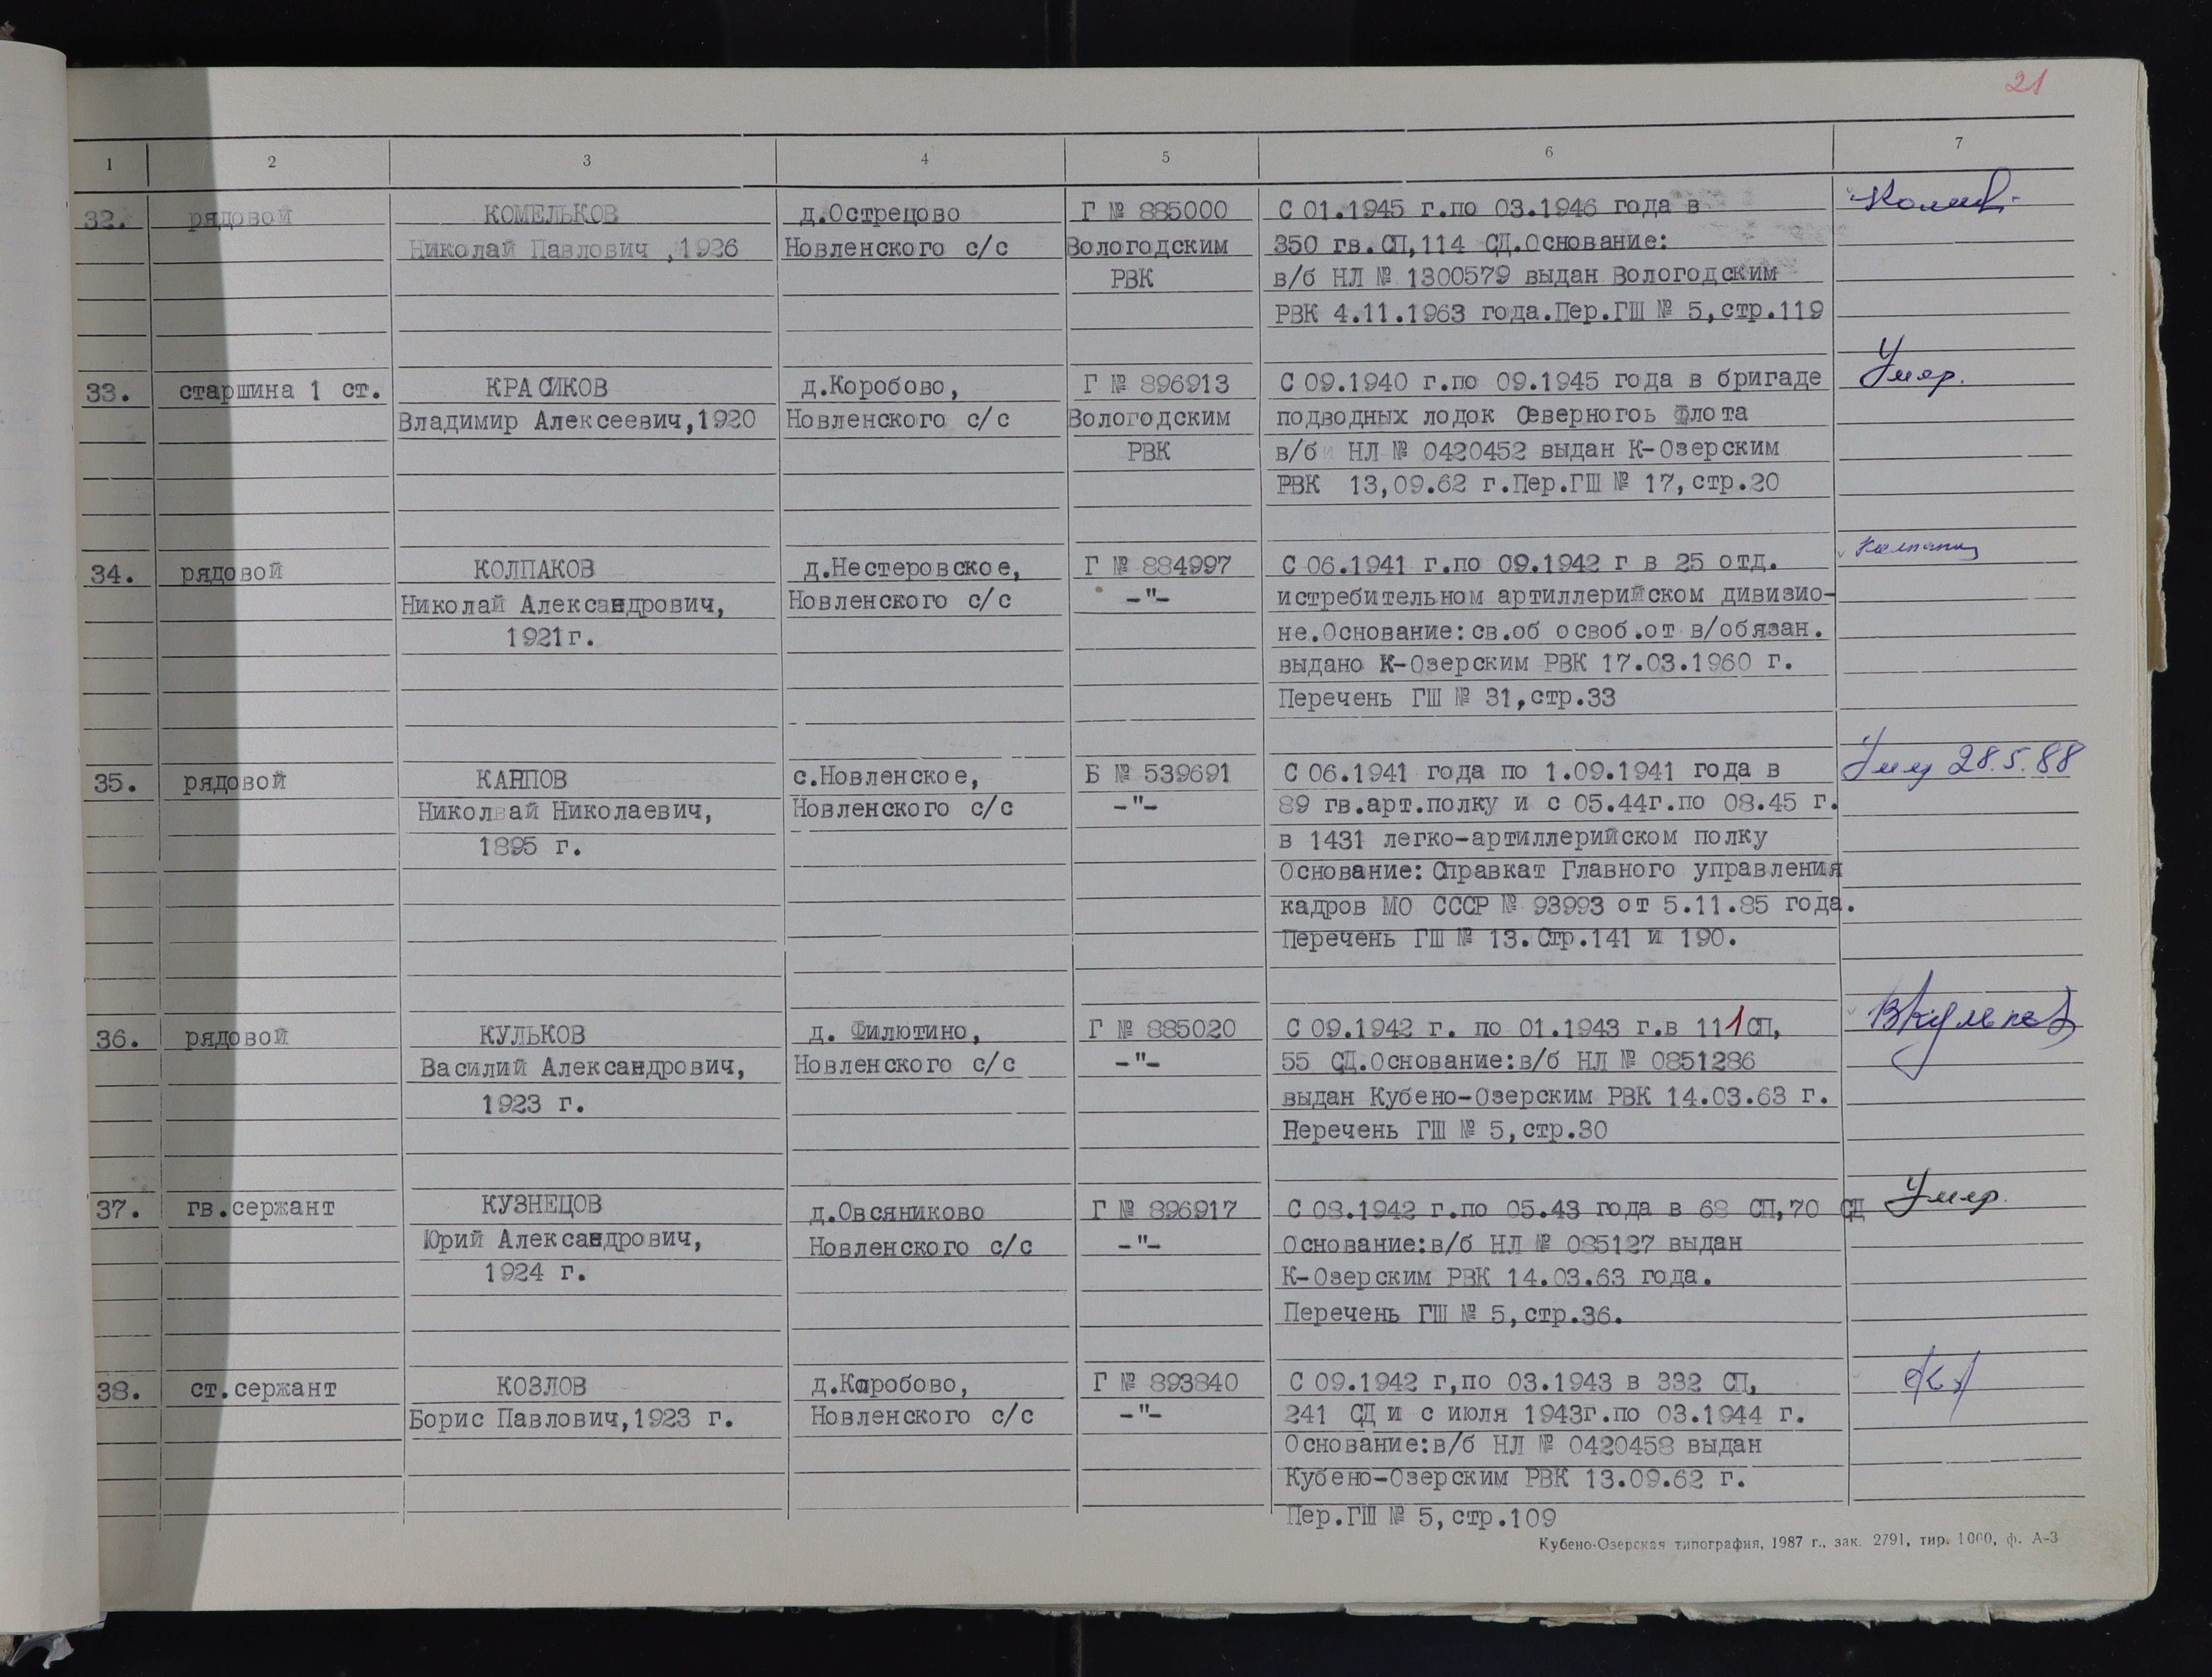 21
1 2 3 4 5 6 7
32. рядовой КОМЕЛЬКОВ д.Острецово Г № 885000 С 01.1945 г.по 03.1946 года в
Николай Павлович ,1926 Новленского с/с Вологодским 350 гв.СП,114 СД.Основание:
РВК в/б НЛ № 1300579 выдан Вологодским
РВК 4.11.1963 года.Пер.ГШ № 5,стр.119
33. старшина 1 ст. КРАСИКОВ д.Коробово, Г № 896913 С 09.1940 г.по 09.1945 года в бригаде Умер.
Владимир Алексеевич,1920 Новленского с/с Вологодским подводных лодок Северногоь Флота
РВК в/б НЛ № 0420452 выдан К-Озерским
РВК 13,09.62 г.Пер.ГШ № 17,стр.20
34. рядовой КОЛПАКОВ д.Нестеровское, Г № 884997 С 06.1941 г.по 09.1942 г в 25 отд.
Николай Александрович, Новленского с/с -"- истребительном артиллерийском дивизио-
1921г. не.Основание:св.об освоб.от в/обязан.
выдано К-Озерским РВК 17.03.1960 г.
Перечень ГШ № 31,стр.33
35. рядовой КАРПОВ с.Новленское, Б № 539691 С 06.1941 года по 1.09.1941 года в 28.5.88
Николай Николаевич, Новленского с/с -"- 89 гв.арт.полку и с 05.44г.по 08.45 г.
1895 г. в 1431 легко-артиллерийском полку
Основание: Справкат Главного управления
кадров МО СССР № 93993 от 5.11.85 года.
Перечень ГШ № 13.Стр.141 и 190.
36. рядовой КУЛЬКОВ д. Филютино, Г № 885020 С 09.1942 г. по 01.1943 г.в 111 СП, ВКульков
Василий Александрович, Новленского с/с -"- 55 СД.Основание:в/б НЛ № 0851286
1923 г. выдан Кубено-Озерским РВК 14.03.63 г.
Перечень ГШ № 5,стр.30
37. гв.сержант КУЗНЕЦОВ д.Овсяниково Г № 896917 С 08.1942 г.по 05.43 года в 68 СП,70 СД Умер.
Юрий Александрович, Новленского с/с -"- Основание:в/б НЛ № 085127 выдан
1924 г. К-Озерским РВК 14.03.63 года.
Перечень ГШ № 5,стр.36.
38. ст.сержант КОЗЛОВ д.Коробово, Г № 893840 С 09.1942 г,по 03.1943 в 332 СП,
Борис Павлович,1923 г. Новленского с/с -"- 241 СД и с июля 1943г.по 03.1944 г.
Основание:в/б НЛ № 0420458 выдан
Кубено-Озерским РВК 13.09.62 г.
Пер.ГШ № 5,стр.109
Кубено-Озерская типография, 1987 г., зак. 2791, тир. 1000, ф. А-3